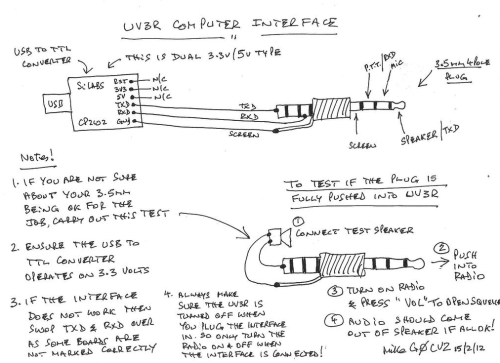 UV3R COMPUTER INTERFACE
USB TO TTL
CONVERTER
THIS IS DUAL 3.3V/5V TYPE
Si LABS
USB
CP2102
RST
3V3
5V
TXD
RXD
GND
N/C
N/C
N/C
TXD
RXD
SCREEN
P.T.T./RXD
MIC
3.5mm 4 POLE
PLUG
SCREEN
SPEAKER/TXD
Notes!
1. IF YOU ARE NOT SURE
ABOUT YOUR 3.5mm
BEING OK FOR THE
JOB, CARRY OUT THIS TEST
2. ENSURE THE USB TO
TTL CONVERTER
OPERATES ON 3.3 VOLTS
3. IF THE INTERFACE
DOES NOT WORK THEN
SWOP TXD & RXD OVER
AS SOME BOARDS ARE
NOT MARKED CORRECTLY
4. ALWAYS MAKE
SURE THE UV3R IS
TURNED OFF WHEN
YOU PLUG THE INTERFACE
IN. SO ONLY TURN THE
RADIO ON & OFF WHEN
THE INTERFACE IS CONNECTED!
TO TEST IF THE PLUG IS
FULLY PUSHED INTO UV3R
① CONNECT TEST SPEAKER
② PUSH
INTO
RADIO
③ TURN ON RADIO
& PRESS "VOL" TO OPEN SQUELCH
④ AUDIO SHOULD COME
OUT OF SPEAKER IF ALL OK!
Mike G0CUZ 15/2/12